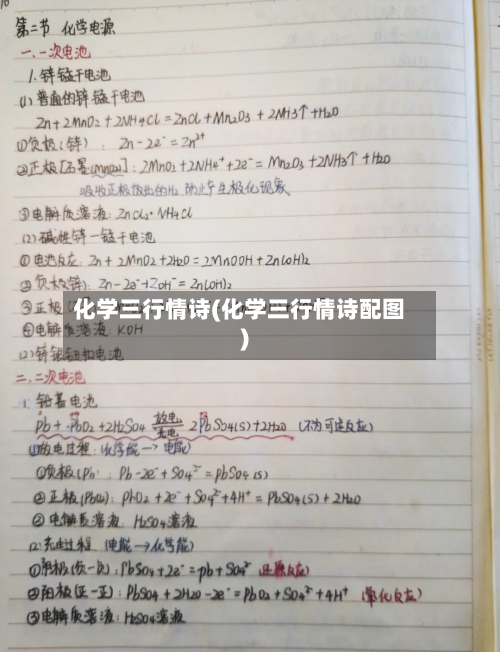 第二节 化学电源
一、一次电池
1. 锌锰干电池
(1) 普通的锌锰干电池
Zn+2MnO2+2NH4Cl=ZnCl+Mn2O3+2NH3↑+H2O
①负极(锌): Zn-2e⁻=Zn²⁺
②正极[石墨(MnO2)]: 2MnO2+2NH4⁺+2e⁻=Mn2O3+2NH3↑+H2O
吸收正极放出的H2 防止产生极化现象
③电解质溶液: ZnCl2·NH4Cl
(2) 碱性锌一锰干电池
①电池反应: Zn+2MnO2+2H2O=2MnOOH+Zn(OH)2
②负极(锌): Zn-2e⁻+2OH⁻=Zn(OH)2
③正极
化学三行情诗(化学三行情诗配图
)
④电解质溶液: KOH
(2) 锌银钮扣电池
二、二次电池
1. 铅蓄电池
Pb+PbO2+2H2SO4 放电 充电 2PbSO4(s)+2H2O (不为可逆反应)
(1)放电过程: (化学能→电能)
①负极(Pb): Pb-2e⁻+SO4²⁻=PbSO4(s)
②正极(PbO2): PbO2+2e⁻+SO4²⁻+4H⁺=PbSO4(s)+2H2O
③电解质溶液: H2SO4溶液
(2)充电过程 (电能→化学能)
①阴极(负一负): PbSO4+2e⁻=Pb+SO4²⁻ (还原反应)
②阳极(正一正): PbSO4+2H2O-2e⁻=PbO2+SO4²⁻+4H⁺ (氧化反应)
③电解质溶液: H2SO4溶液